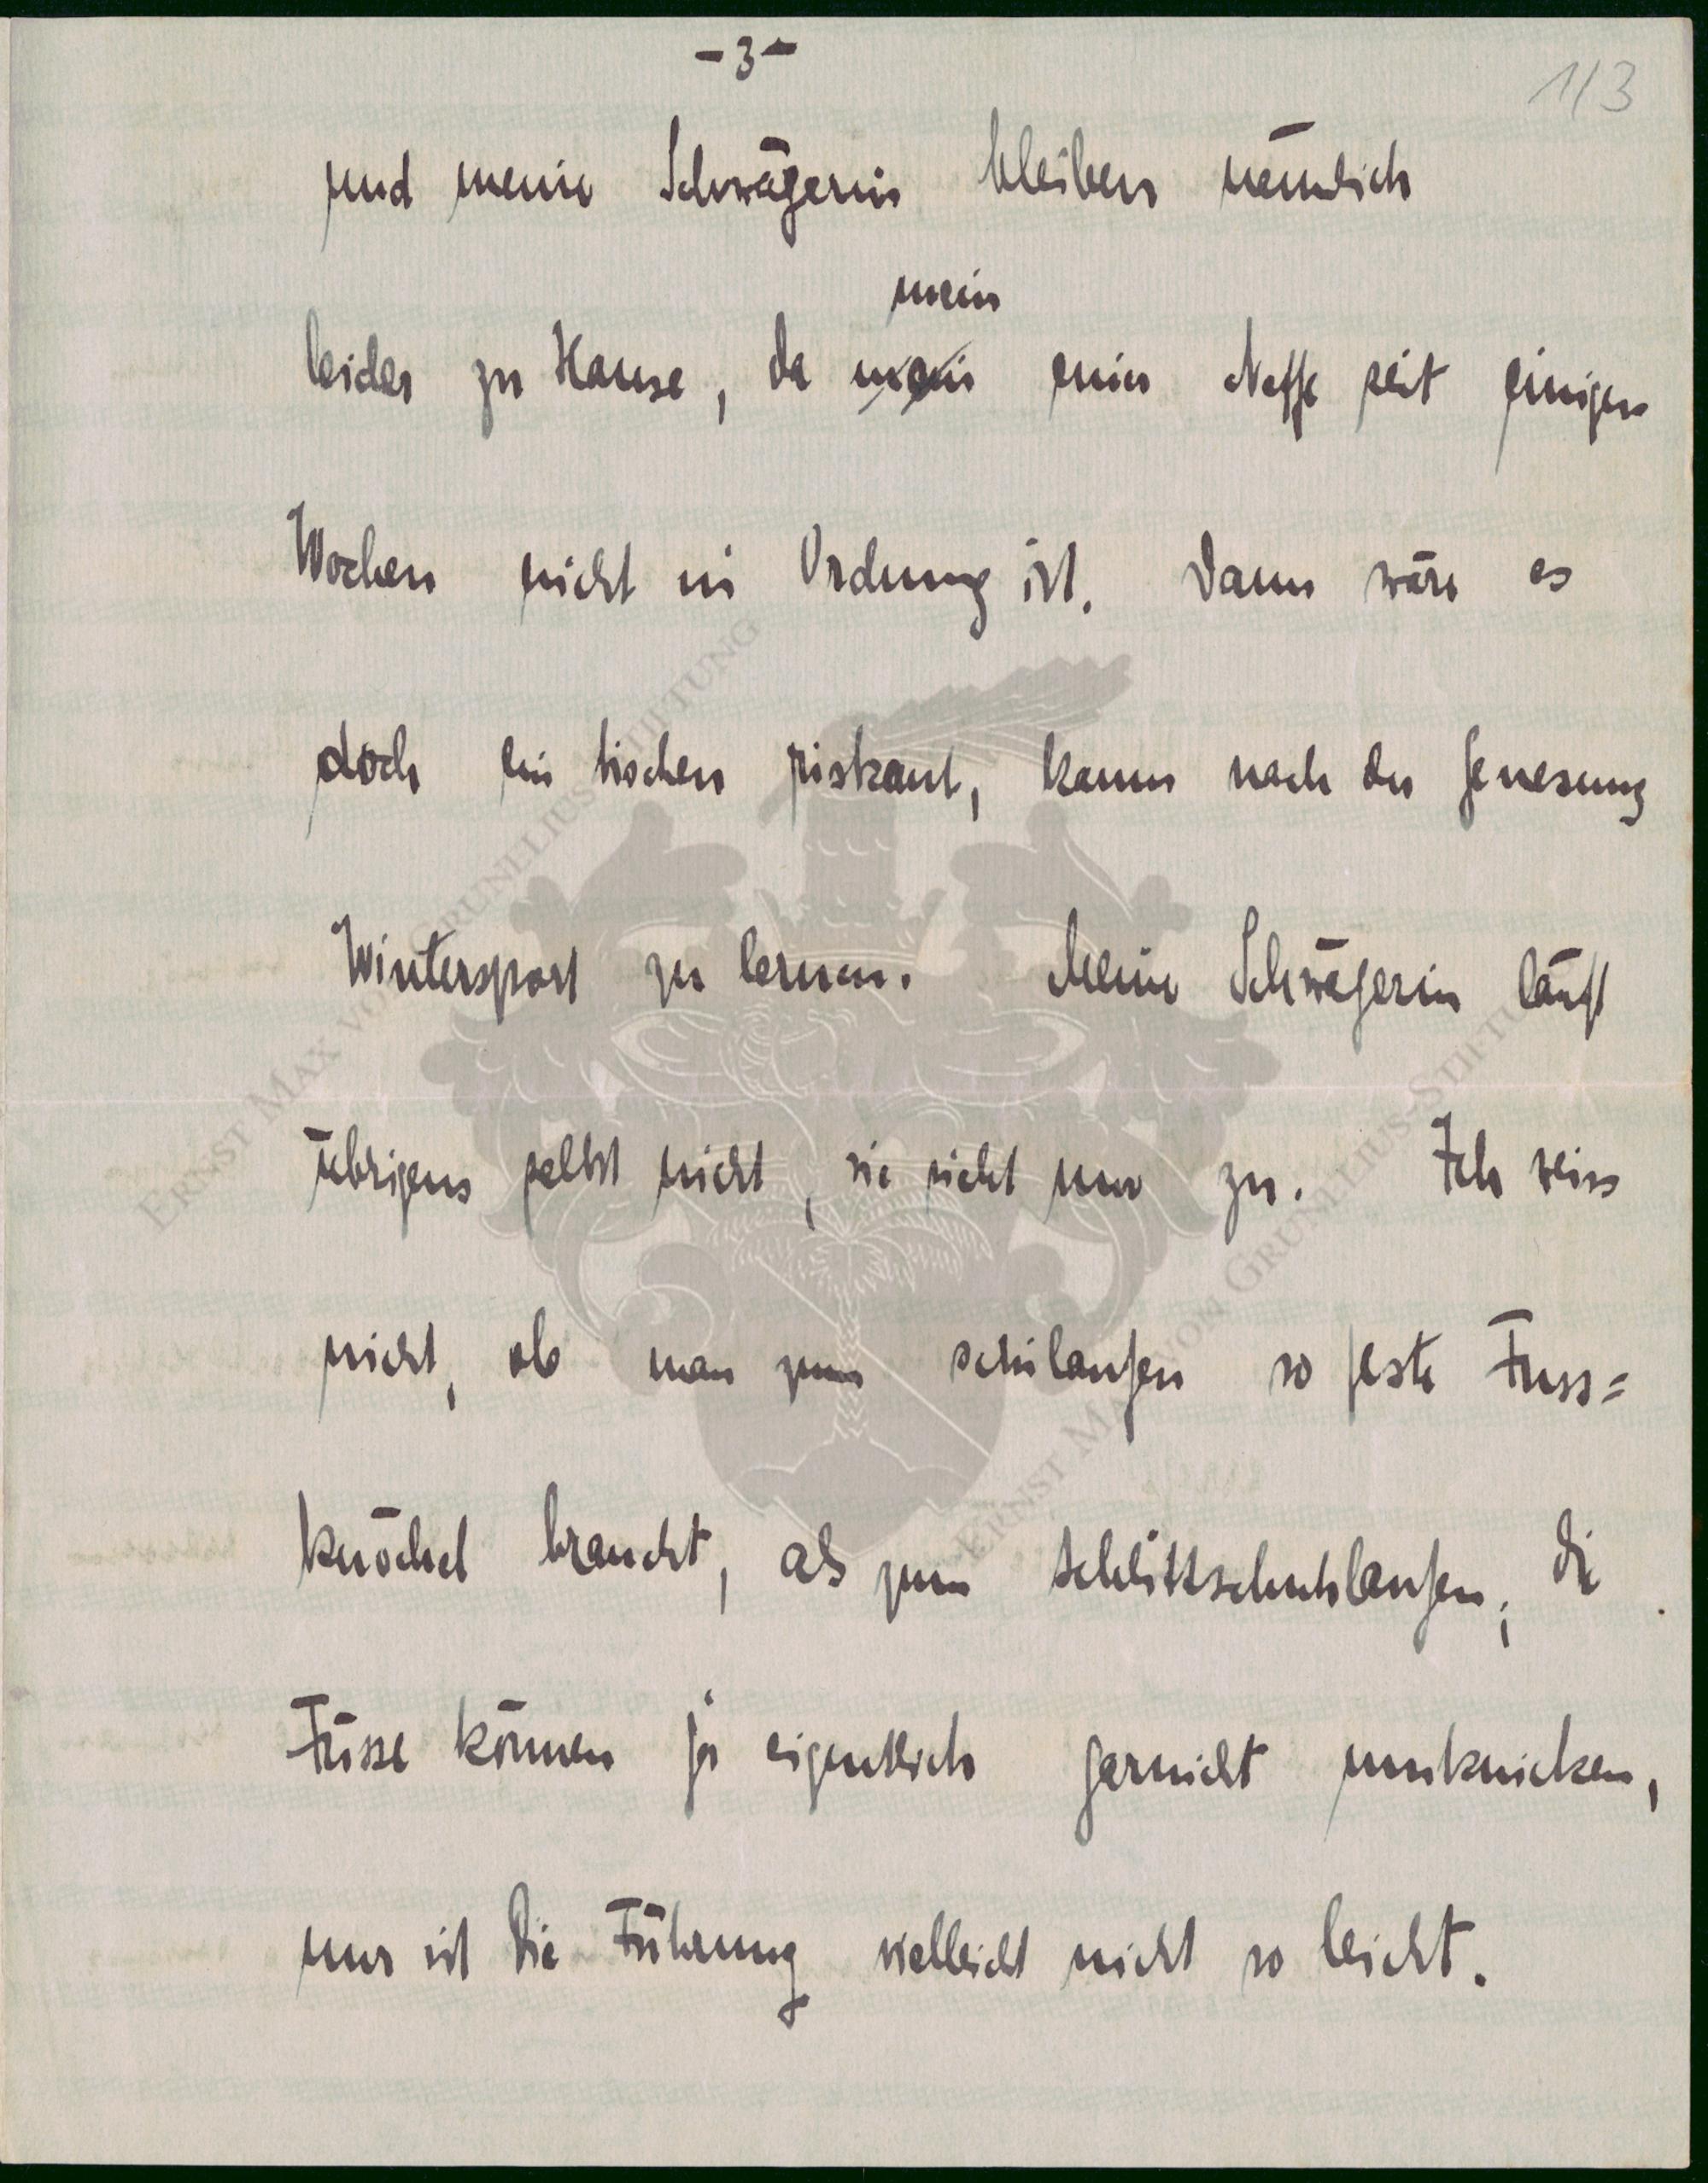 -3-
1/3
und meine Schwägerin bleiben nämlich
mein
leider zu Hause, da mein einer Neffe seit einigen
Wochen nicht in Ordnung ist. Dann wäre es
doch ein bischen riskant, kaum nach der Genesung
Wintersport zu lernen. Meine Schwägerin läuft
übrigens selbst nicht, sie sieht nur zu. Ich weiss
nicht, ob man zum schilaufen so feste Fuss=
knöchel braucht, als zum Schlittschuhlaufen; die
Füsse können ja eigentlich garnicht umknicken,
nur ist die Führung vielleicht nicht so leicht.
ERNST MAX VON GRUNELIUS-STIFTUNG
ERNST MAX VON GRUNELIUS-STIFTUNG